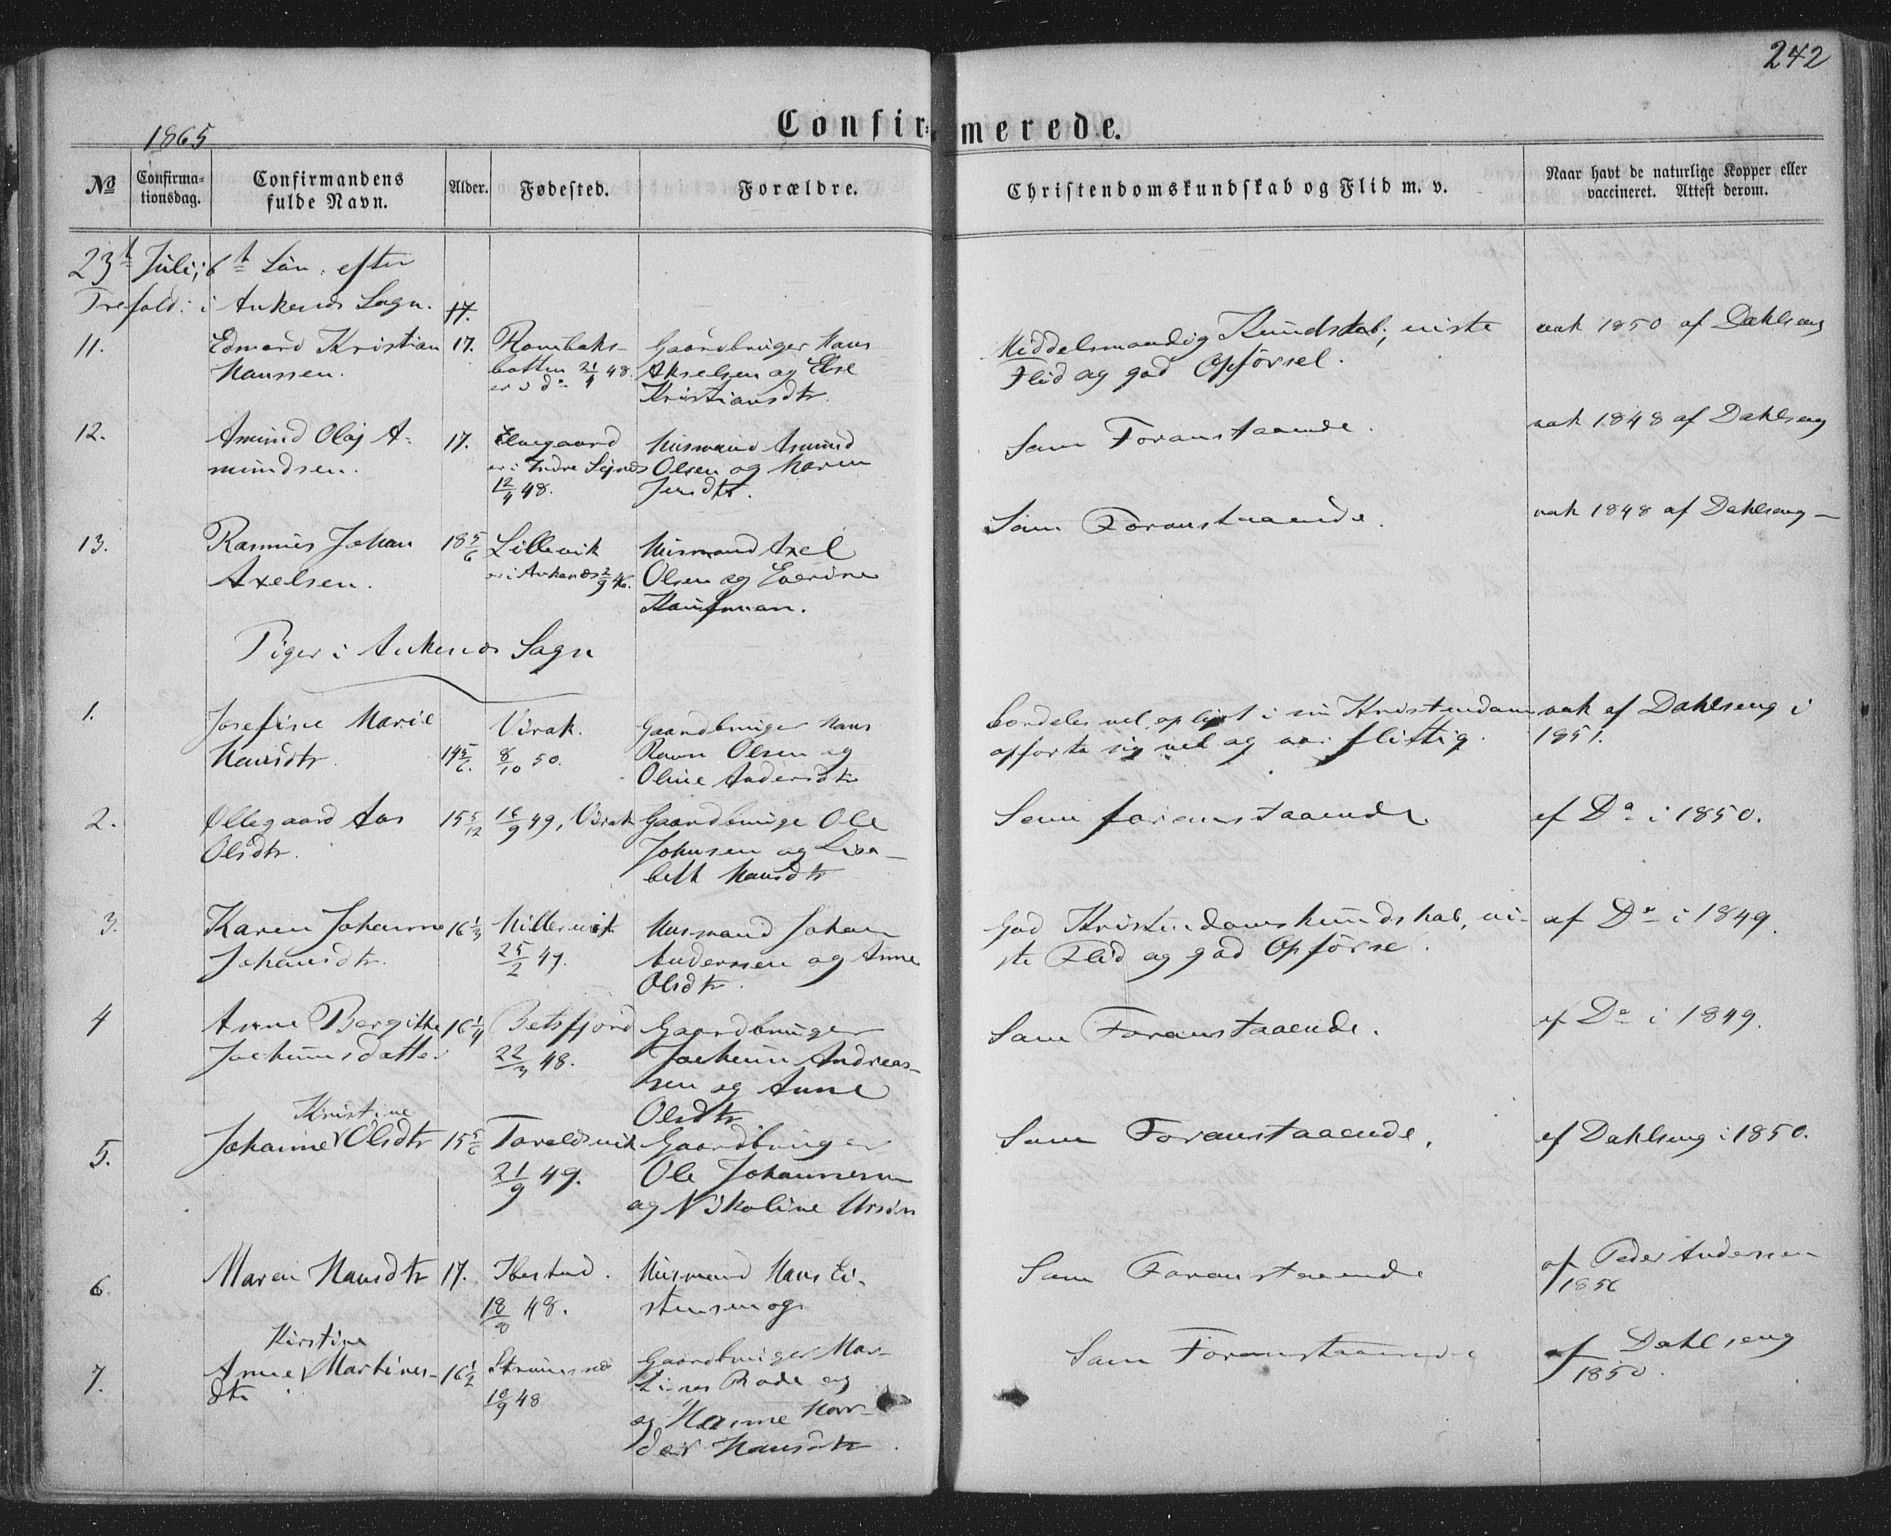 242
Confir=merede.
1865
No
Confirma-
tionsdag.
Confirmandens
fulde Navn.
Alder.
Fødested.
Forældre.
Christendomskundskab og Flid m. v.
Naar havt de naturlige Kopper eller
vaccineret. Attest derom.
23t Juli, 6t Søn. efter
Trefold. i Ankenæs Sogn.
17.
11.
Edvard Kristian
Hanssen.
17.
Rombaks-
botten 21/4 48.
Gaardbruger Hans
Akselsen og Else
Kristiansdtr.
Middelmaadig Kundskab, viste
Flid og god Opførsel.
vak 1850 af Dahlseng
12.
Amund Olaj A-
mundsen.
17.
Elvegaard
er i Indre Sejnes
12/4 48.
Husmand Amund
Olsen og Maren
Jensdtr.
Som Foranstaaende.
vak 1848 af Dahlseng
13.
Rasmus Johan
Axelsen.
18 5/6
Lillevik
er i Ankenæs 2/9 46.
Husmand Axel
Olsen og Everine
Kaufman.
Som Foranstaaende.
vak 1848 af Dahlseng
Piger i Ankenæs Sogn
1.
Josefine Marie
Hansdtr.
14 5/6.
Virak.
8/10 50.
Gaardbruger Hans
Ravn Olsen og
Oline Andersdtr
Særdeles vel oplyst i sin Kristendom
opførte sig vel og var flittig.
vak af Dahlseng i
1851.
2.
Ollegaard Aas
Olsdtr.
15 5/12
16/9 49, Virak
Gaardbruge Ole
Johnsen og Lisa-
beth Hansdtr
Som foranstaaende
af Do i 1850.
3.
Karen Johanne
Johansdtr.
16 1/3
25/2 49.
Husmand Johan
Anderssen og Anne
Olsdtr.
God Kristendomskundskab, vi-
ste Flid og god Opførse.
af Do i 1849.
4
Anne Bergitha
Jochumsdatter
16 1/4
Beisfjord
22/3 48.
Gaardbruger
Jochum Andreas-
sen og Anne
Olsdtr
Som Foranstaaende.
af Do i 1849.
5.
Kristine
Johanne Olsdtr
15 5/6
Taraldsvik
21/9 49.
Gaardbruger
Ole Johannesen
og Nikoline Ursin
Som Foranstaaende.
af Dahlseng i 1850.
6.
Maren Hansdtr
17.
Ibestad.
18/8 48.
Husmand Hans Ei-
stensen og
Som Foranstaaende
af Peder Anderssen
1850
7.
Kirstine
Anne Martines-
dtr
16 1/2
Strumsnæs
10/9 48
Gaardbruger Mar-
tines Rode og
og Hanne Mar-
Hansdtr.
Som Foranstaaende
af Dahlseng
1850.